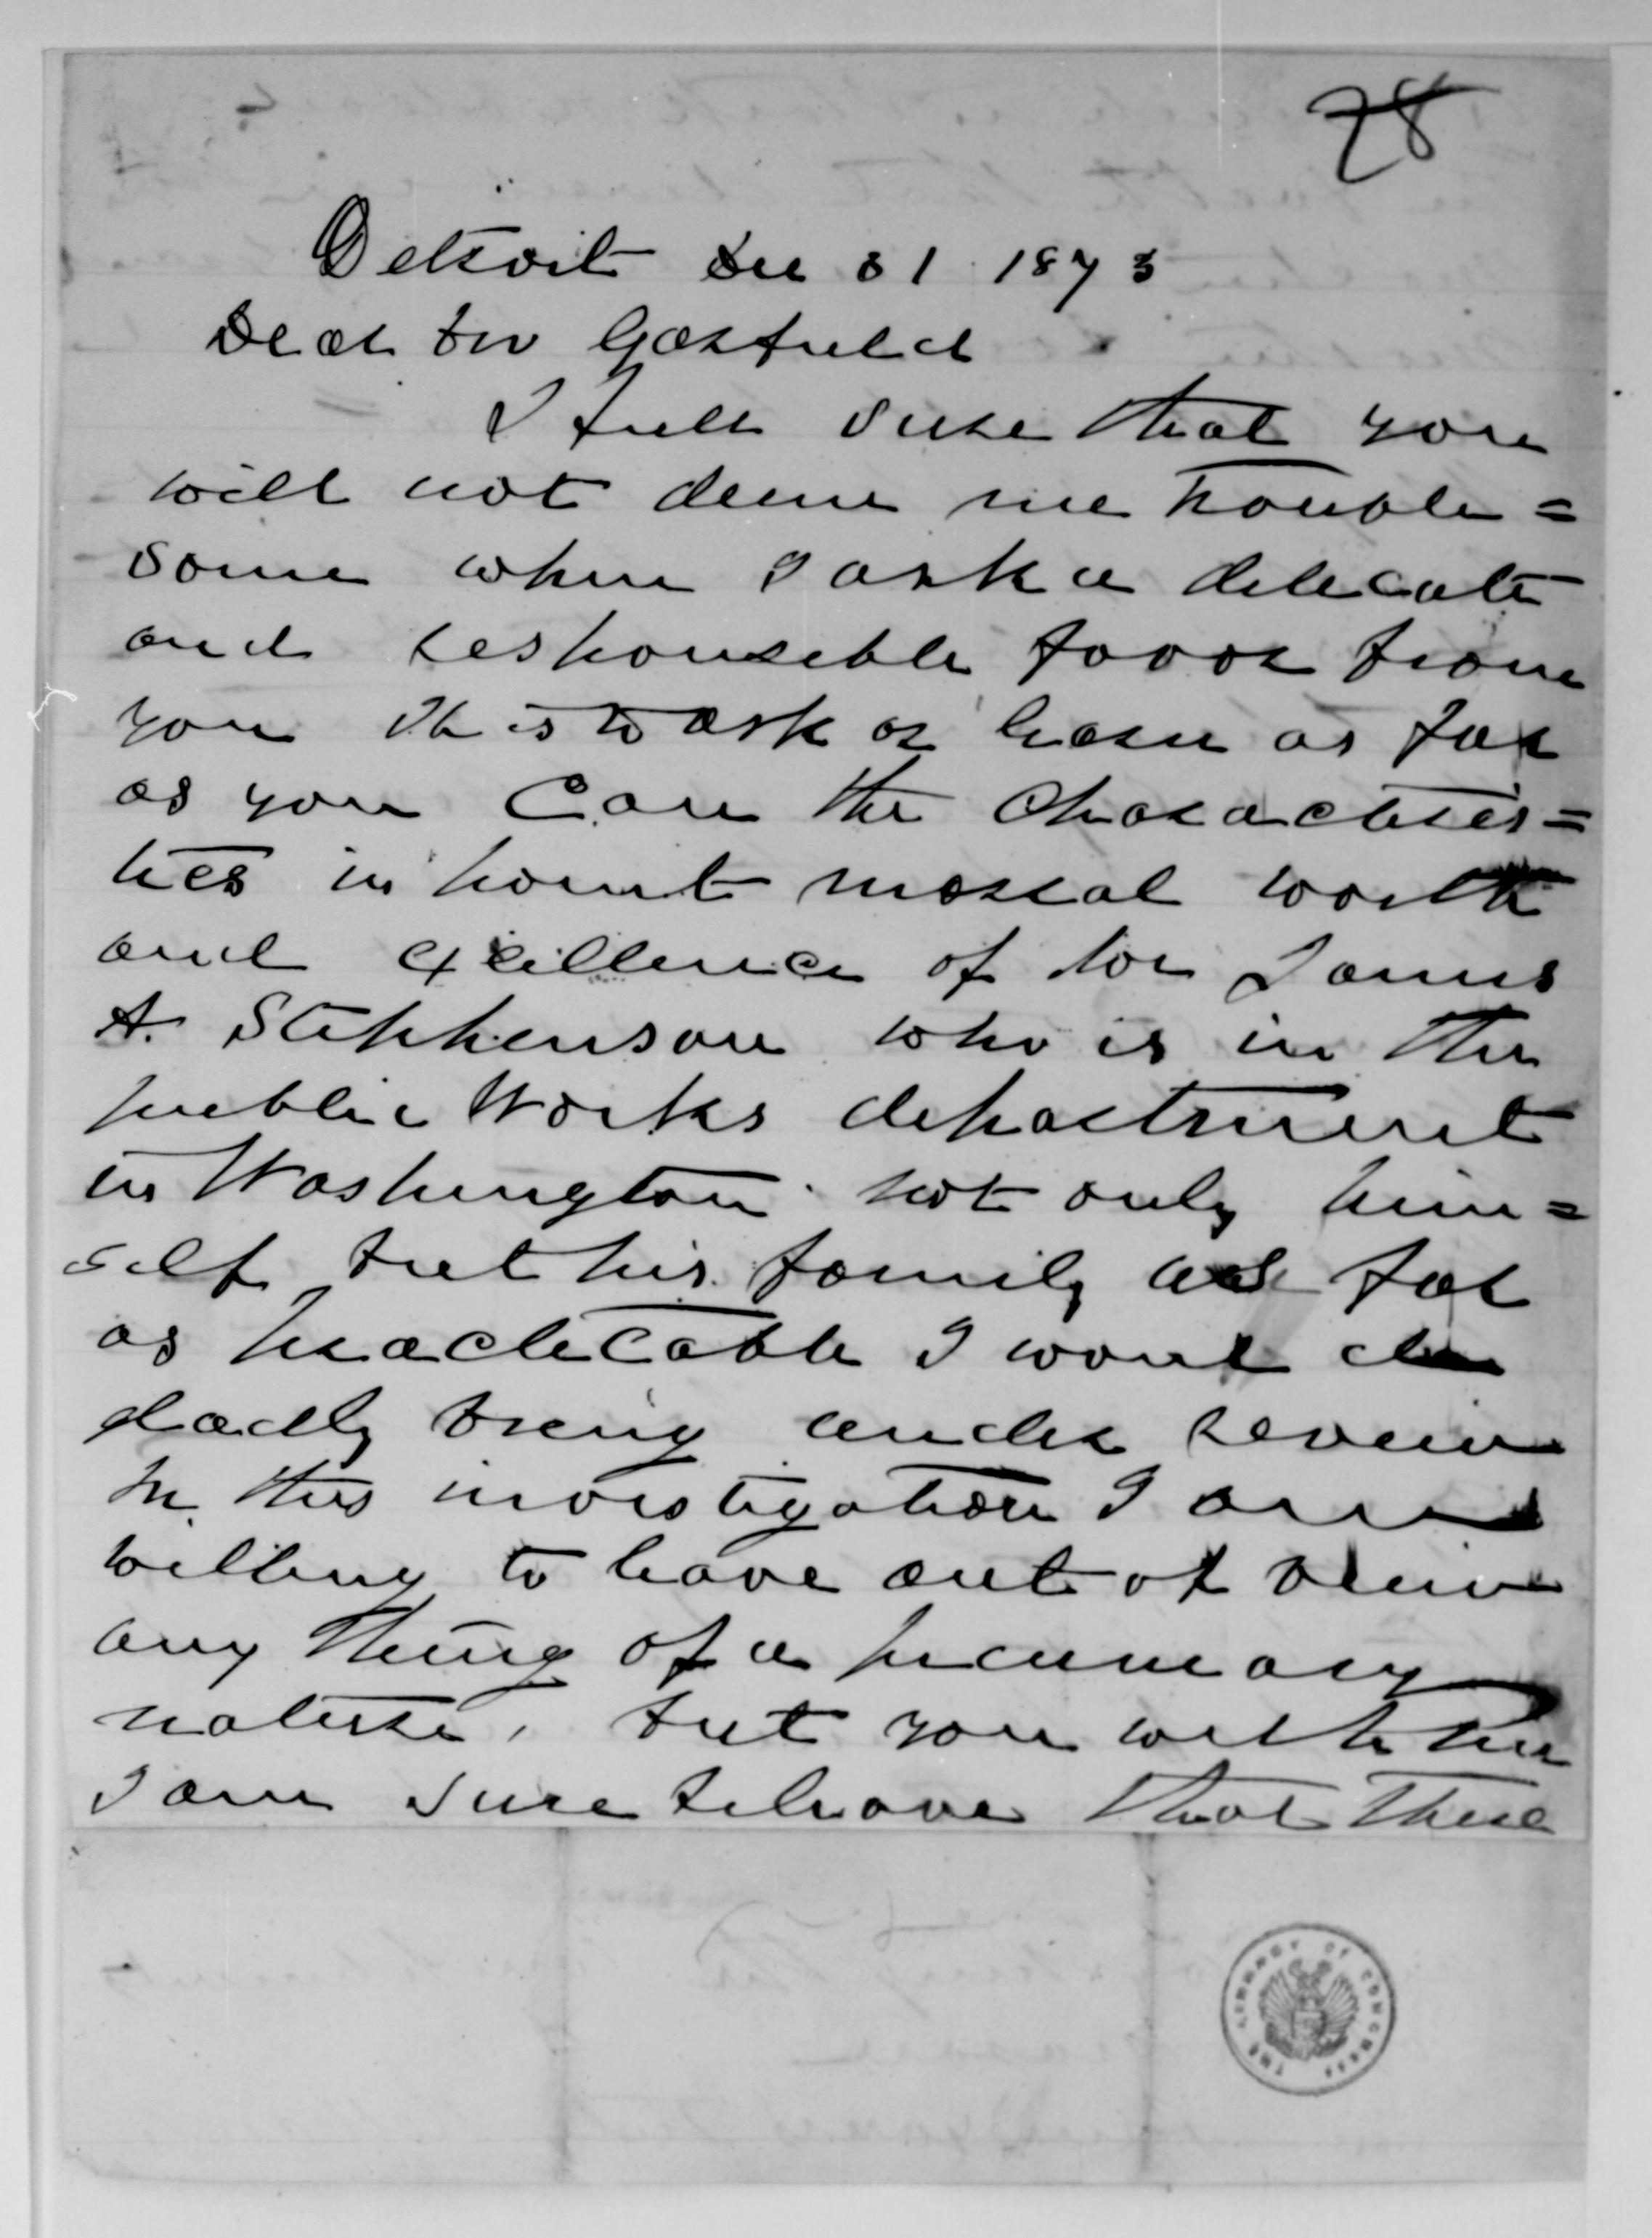 78
Detroit Dec 31 1873
Dear Bro Garfield
I feell sure that you
will not deem me trouble=
some when I ask a delecate
and responseble favor from
you It is to ask or learn as far
as you Can the Characteris=
tics in point moral worth
and excillence of Bro James
A. Stephenson who is in the
public Works department
in Washington not only him=
self but his family as far
as practicable I would
gladly bring under review
In this investigation I am
willing to leave out of view
any thing of a pecuneary
nature, but you will
I am sure believe that these
THE LIBRARY OF CONGRESS